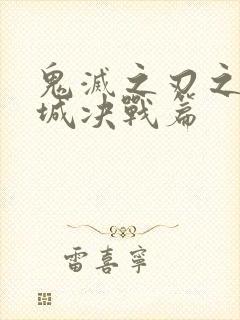 鬼滅之刃之
城决戰篇
雷喜寧